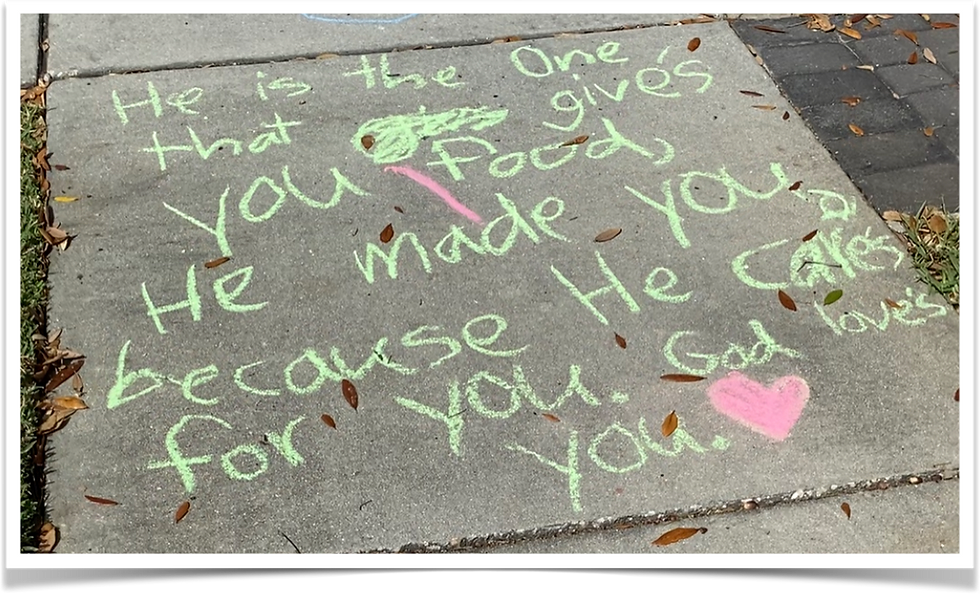 He is the One
that give's
you Food,
He made you,
because He Care's
for you. God love's
you.